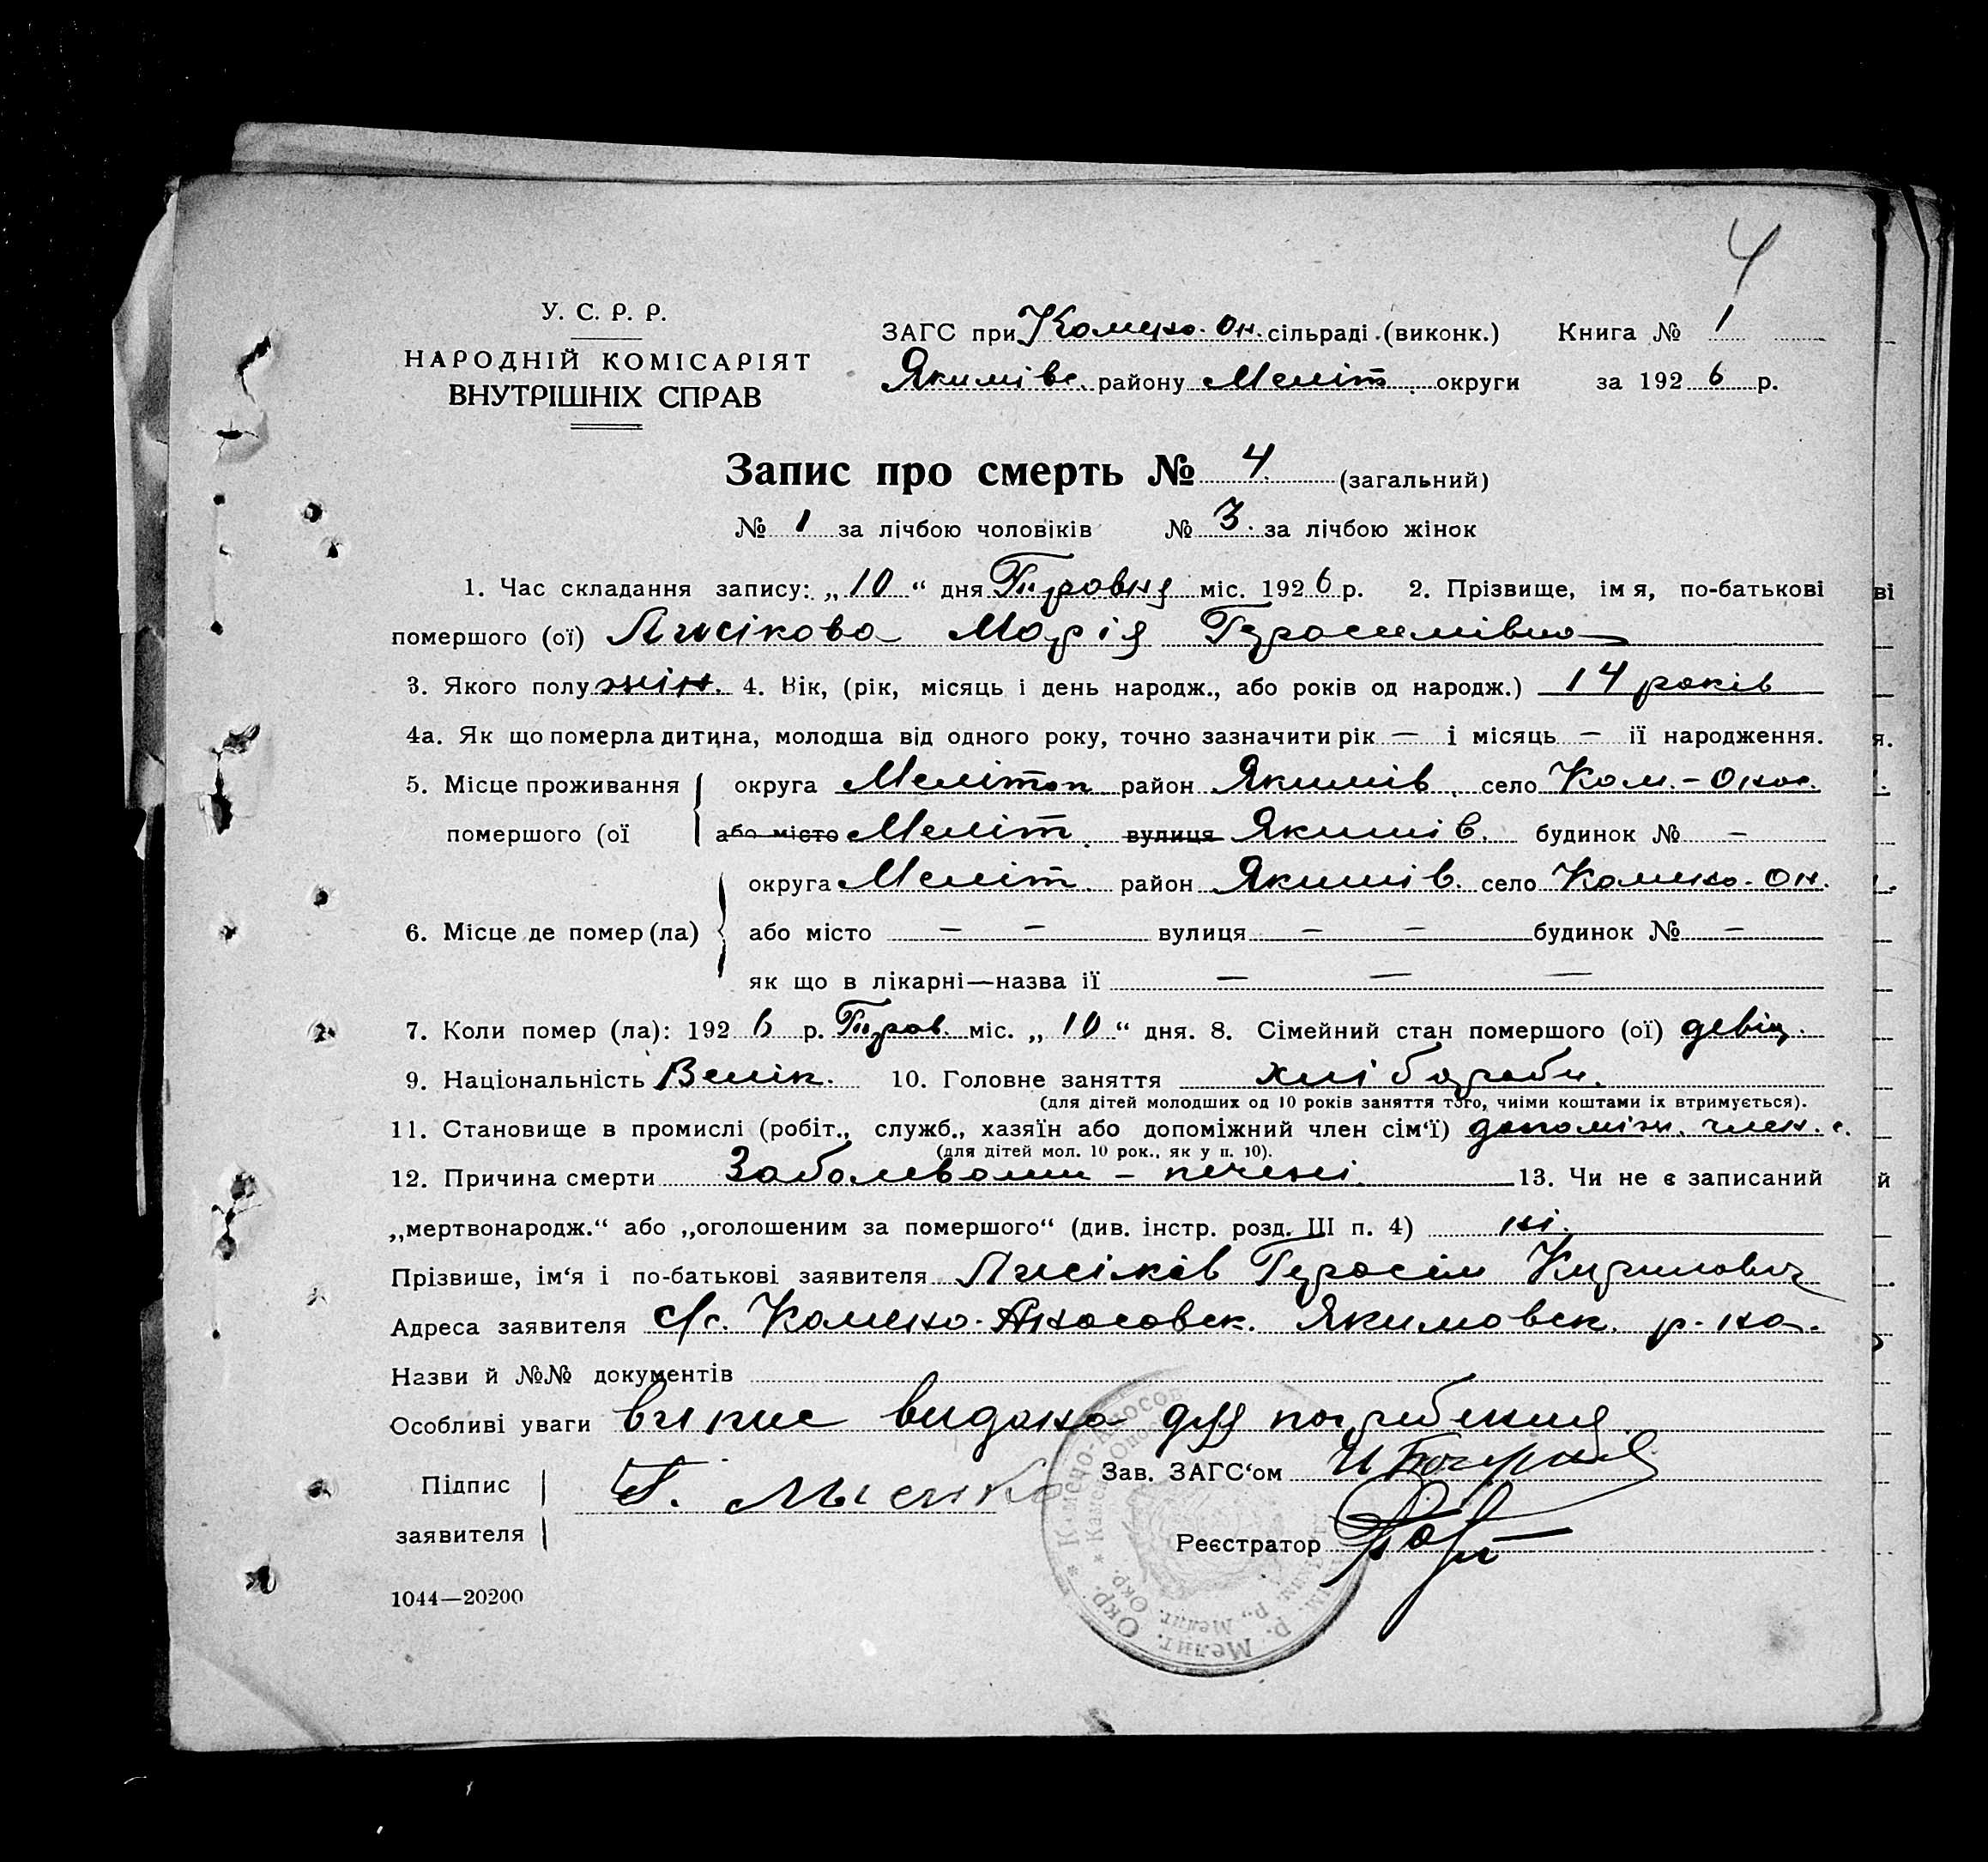 4
У. С. Р. Р.
НАРОДНІЙ КОМІСАРІЯТ
ВНУТРІШНІХ СПРАВ
ЗАГС при Камено. Он. сільраді (виконк.) Книга № 1
Якимівс. району Меліт. округи за 1926 р.
Запис про смерть № 4. (загальний)
№ 1 за лічбою чоловіків № 3. за лічбою жінок
1. Час складання запису: „10“ дня міс. 1926 р. 2. Прізвище, імя, по-батькові
помершого (ої) Лисікова Марія Герасимівна
3. Якого полу жін. 4. Вік, (рік, місяць і день народж., або років од народж.) 14 років
4а. Як що померла дитина, молодша від одного року, точно зазначити рік — і місяць — її народження.
5. Місце проживання округа Мелітоп район Якимів. село Кам.-Онос.
помершого (ої або місто Меліт. вулиця Якимів. будинок № —
округа Меліт. район Якимів. село Камено. Он.
6. Місце де помер (ла) або місто — — вулиця — — будинок № —
як що в лікарні—назва ії — — —
7. Коли помер (ла): 1926 р. міс. „10“ дня. 8. Сімейний стан помершого (ої) девіц.
9. Національність Велік. 10. Головне заняття хлібороби.
(для дітей молодших од 10 років заняття того, чиїми коштами їх втримується).
11. Становище в промислі (робіт., служб., хазяїн або допоміжний член сім‘ї) допоміжн. член. с.
(для дітей мол. 10 рок., як у п. 10).
12. Причина смерти Заболевании - печені. 13. Чи не є записаний
„мертвонародж.“ або „оголошеним за помершого“ (див. інстр. розд. III п. 4) ні.
Прізвише, ім‘я і по-батькові заявителя Лисіков Герасім Кирилович
Адреса заявителя с/с. Камено. Якимовск. р-на.
Назви й №№ документів
Особливі уваги випис видана для погребения
Підпис
заявителя
Г. Лысик
Зав. ЗАГС‘ом
Реєстратор
1044—20200